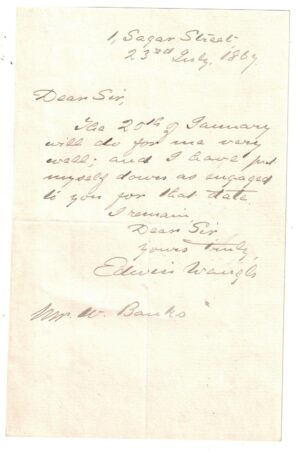 1, Sagar Street
23rd July, 1867
Dear Sir,
The 20th of January
will do for me very
well; and I have put
myself down as engaged
to you for that date.
I remain,
Dear Sir,
Yours Truly,
Edwin Waugh
Mr. W. Banks